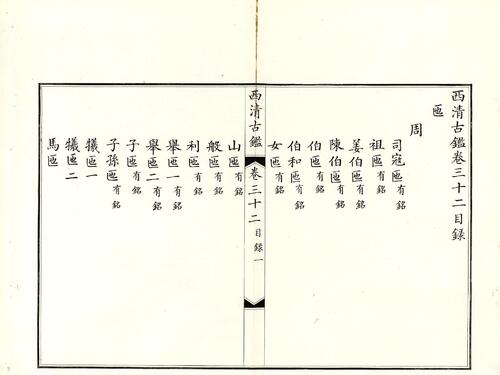 西清古鑑卷三十二目錄
匜
周
司寇匜有銘
祖匜有銘
姜伯匜有銘
陳伯匜有銘
伯匜有銘
伯和匜有銘
女匜有銘
西清古鑑 卷三十二目錄 一
山匜有銘
般匜有銘
利匜有銘
舉匜一有銘
舉匜二有銘
子匜有銘
子孫匜有銘
犧匜一
犧匜二
馬匜